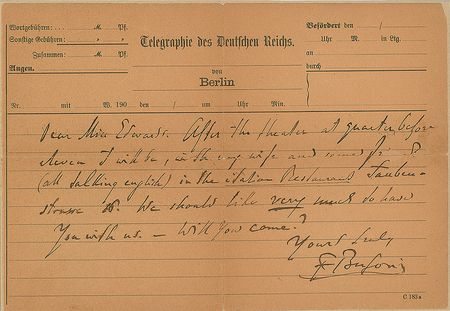 Wortgebühren: . . . M. Pf.
Sonstige Gebühren: „ „
Zusammen: M. Pf.
Angen.
Telegraphie des Deutschen Reichs.
von
Berlin
Befördert den /
Uhr M. in Ltg.
an
durch
Nr. mit W. 190 den / um Uhr Min.
Dear Miss Edwards. After the theater at quarter before
eleven I will be, with my wife and some
(all talking english) in the italian Restaurant Tauben-
strasse. We should like very much to have
You with us. — Will You come?
Yours truly
F Busoni
C 183a